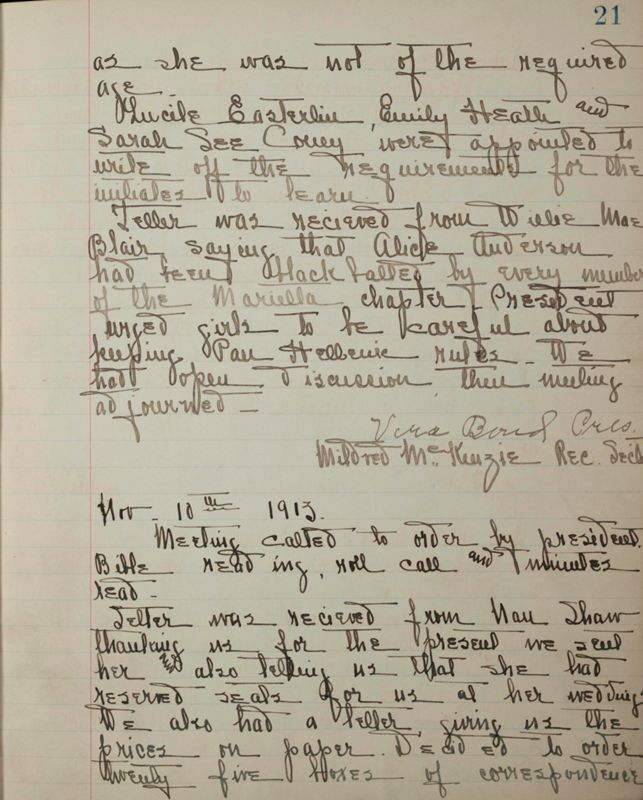 21
as she was not of the required
age.
Lucile Easterlin, Emily Heath and
Sarah See Coney were appointed to
write off the requirements for the
initiates to learn.
Letter was recieved from Willie Mae
Blair saying that Alice Anderson
had been black balled by every member
of the Mariella chapter. President
urged girls to be careful about
keeping Pan Hellenic rules. We
had open discussion, then meeting
adjourned —
Vera Bond Pres.
Mildred McKenzie Rec. Sect
Nov. 10th 1913.
Meeting called to order by president.
Bible reading, roll call and minutes
read —
Letter was recieved from Nan Shaw
thanking us for the present we sent
her and also telling us that she had
reserved seats for us at her wedding.
We also had a letter giving us the
prices on paper. Decided to order
twenty five boxes of correspondence